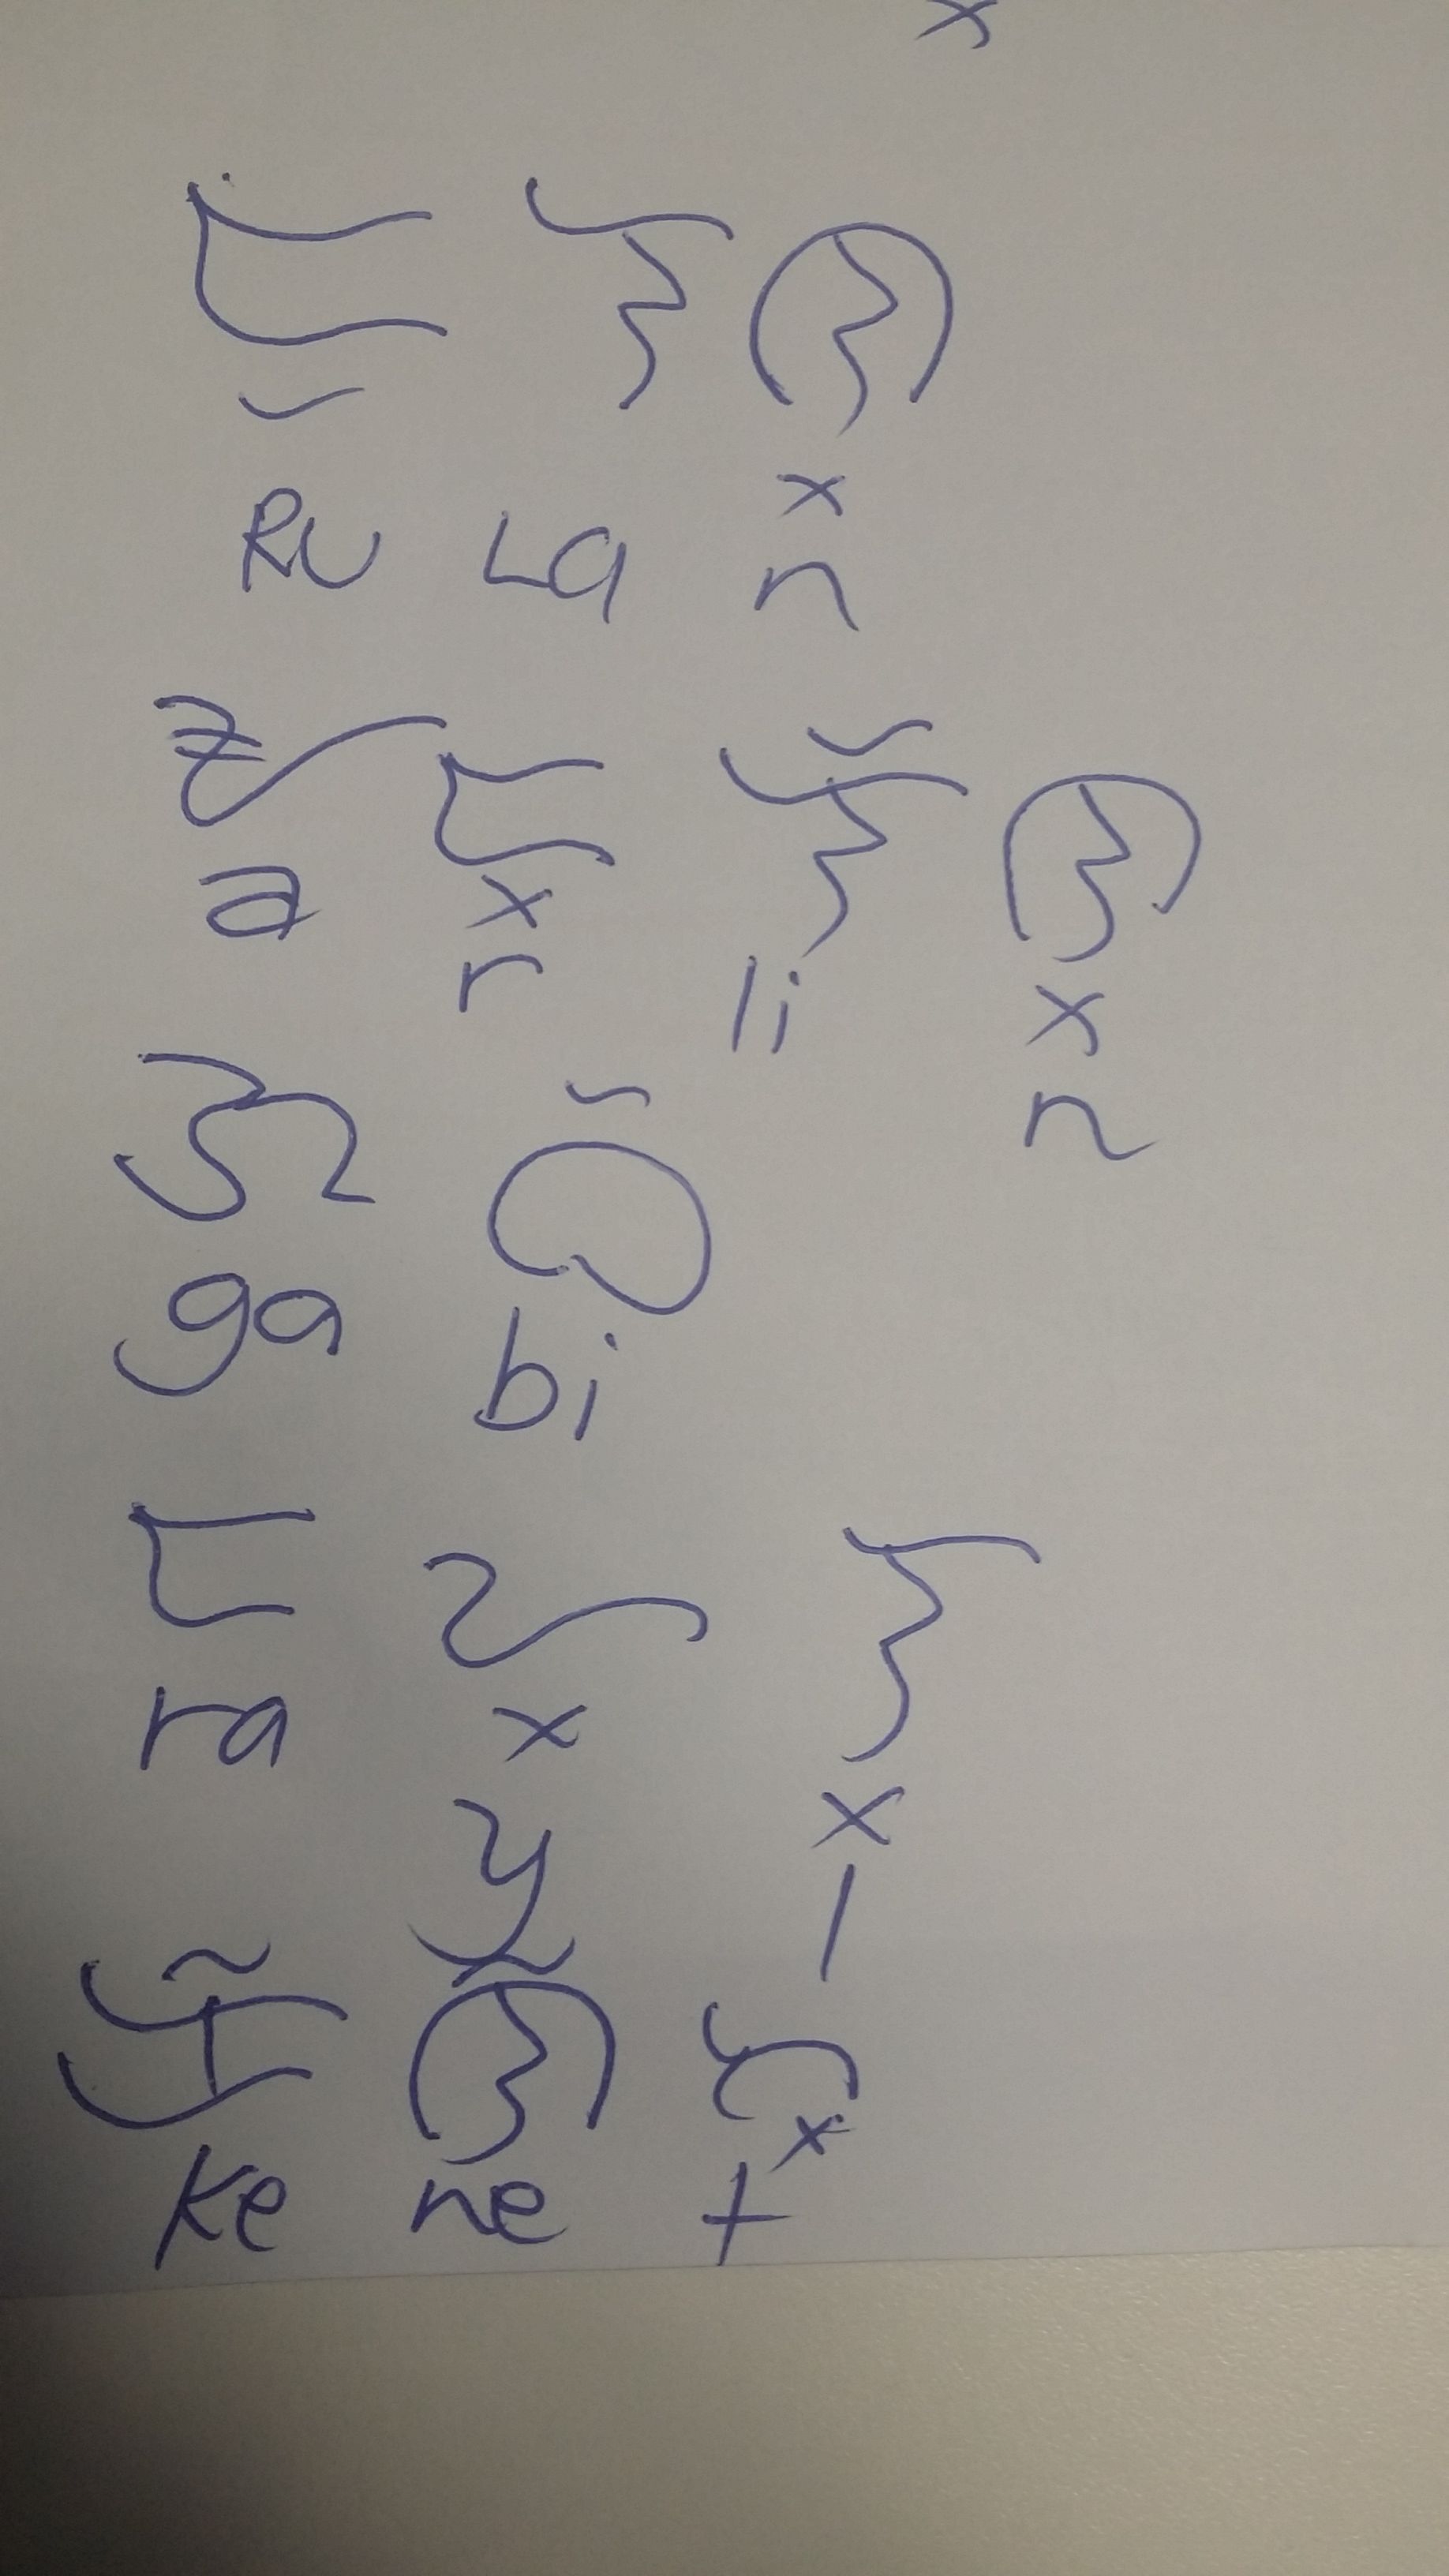 ᜇᜓ ᜎ ᜈ᜔
RU La n
ᜀ ᜇ᜔ ᜎᜒ ᜈ᜔
a r li n
ᜄ ᜊᜒ
ga bi
ᜇ ᜌ᜔ ᜎ᜔
ra y l
ᜃᜒ ᜈᜒ ᜆ᜔
Ke ne t